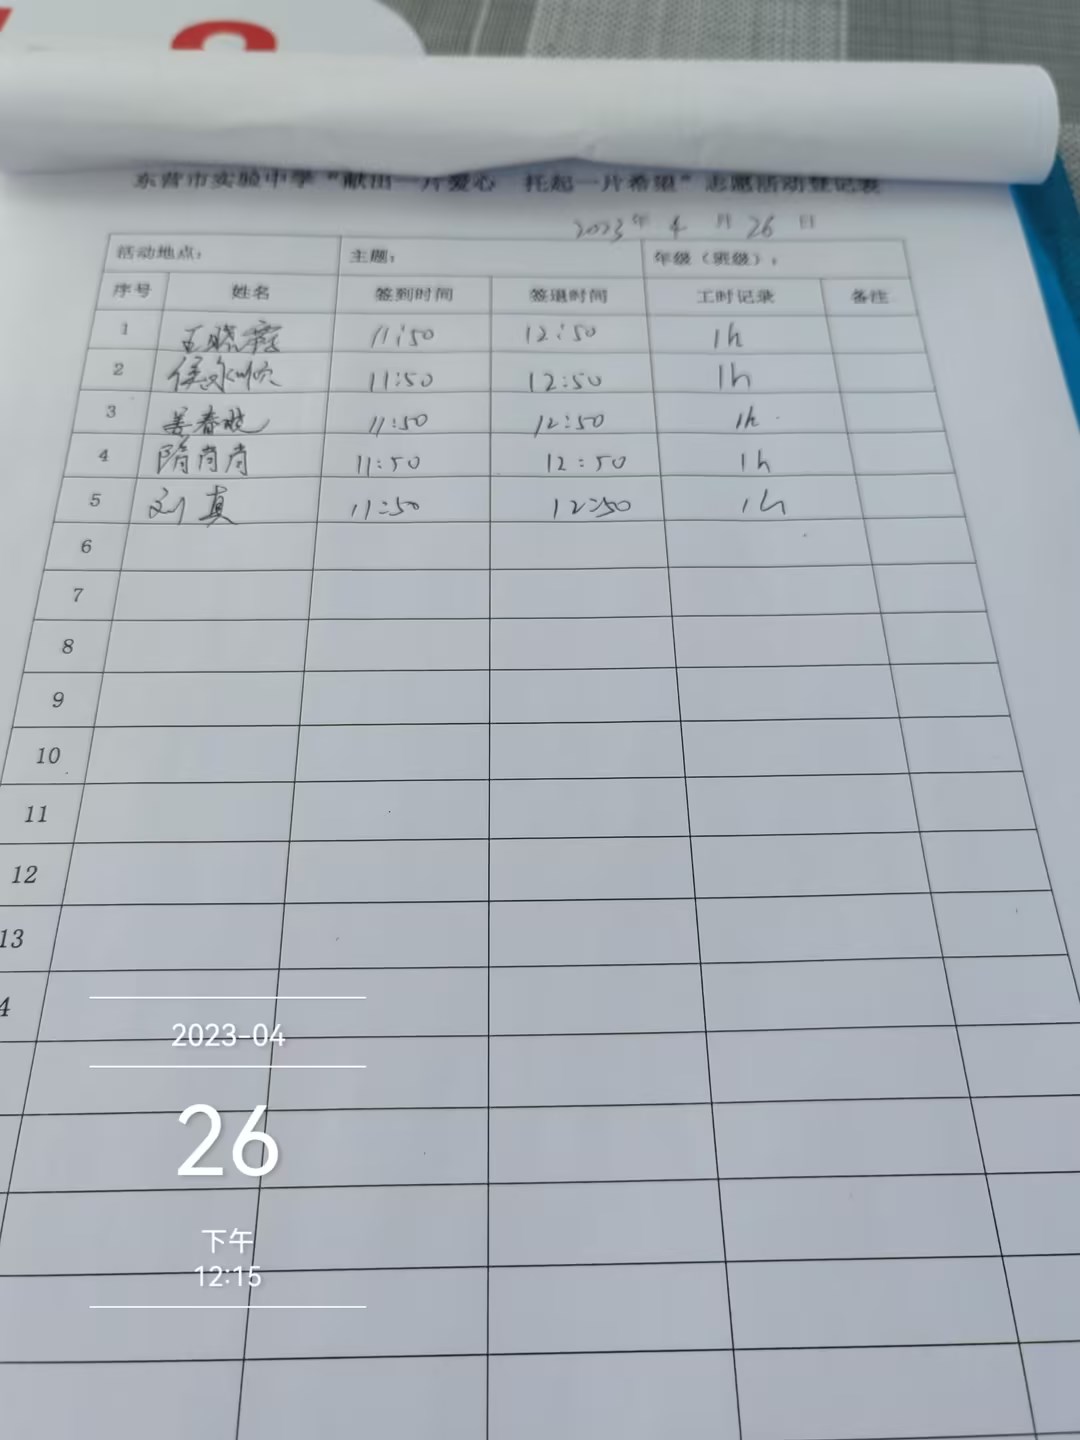 东营市实验中学“献出一片爱心 托起一片希望”志愿活动登记表
2023年 4 月 26 日
活动地点： 主题： 年级（班级）：
序号 姓名 签到时间 签退时间 工时记录 备注
1 王晓霞 11:50 12:50 1h
2 侯永顺 11:50 12:50 1h
3 姜春晓 11:50 12:50 1h
4 隋肖肖 11:50 12:50 1h
5 刘真 11:50 12:50 1h
6
7
8
9
10
11
12
13
4
2023-04
26
下午
12:15